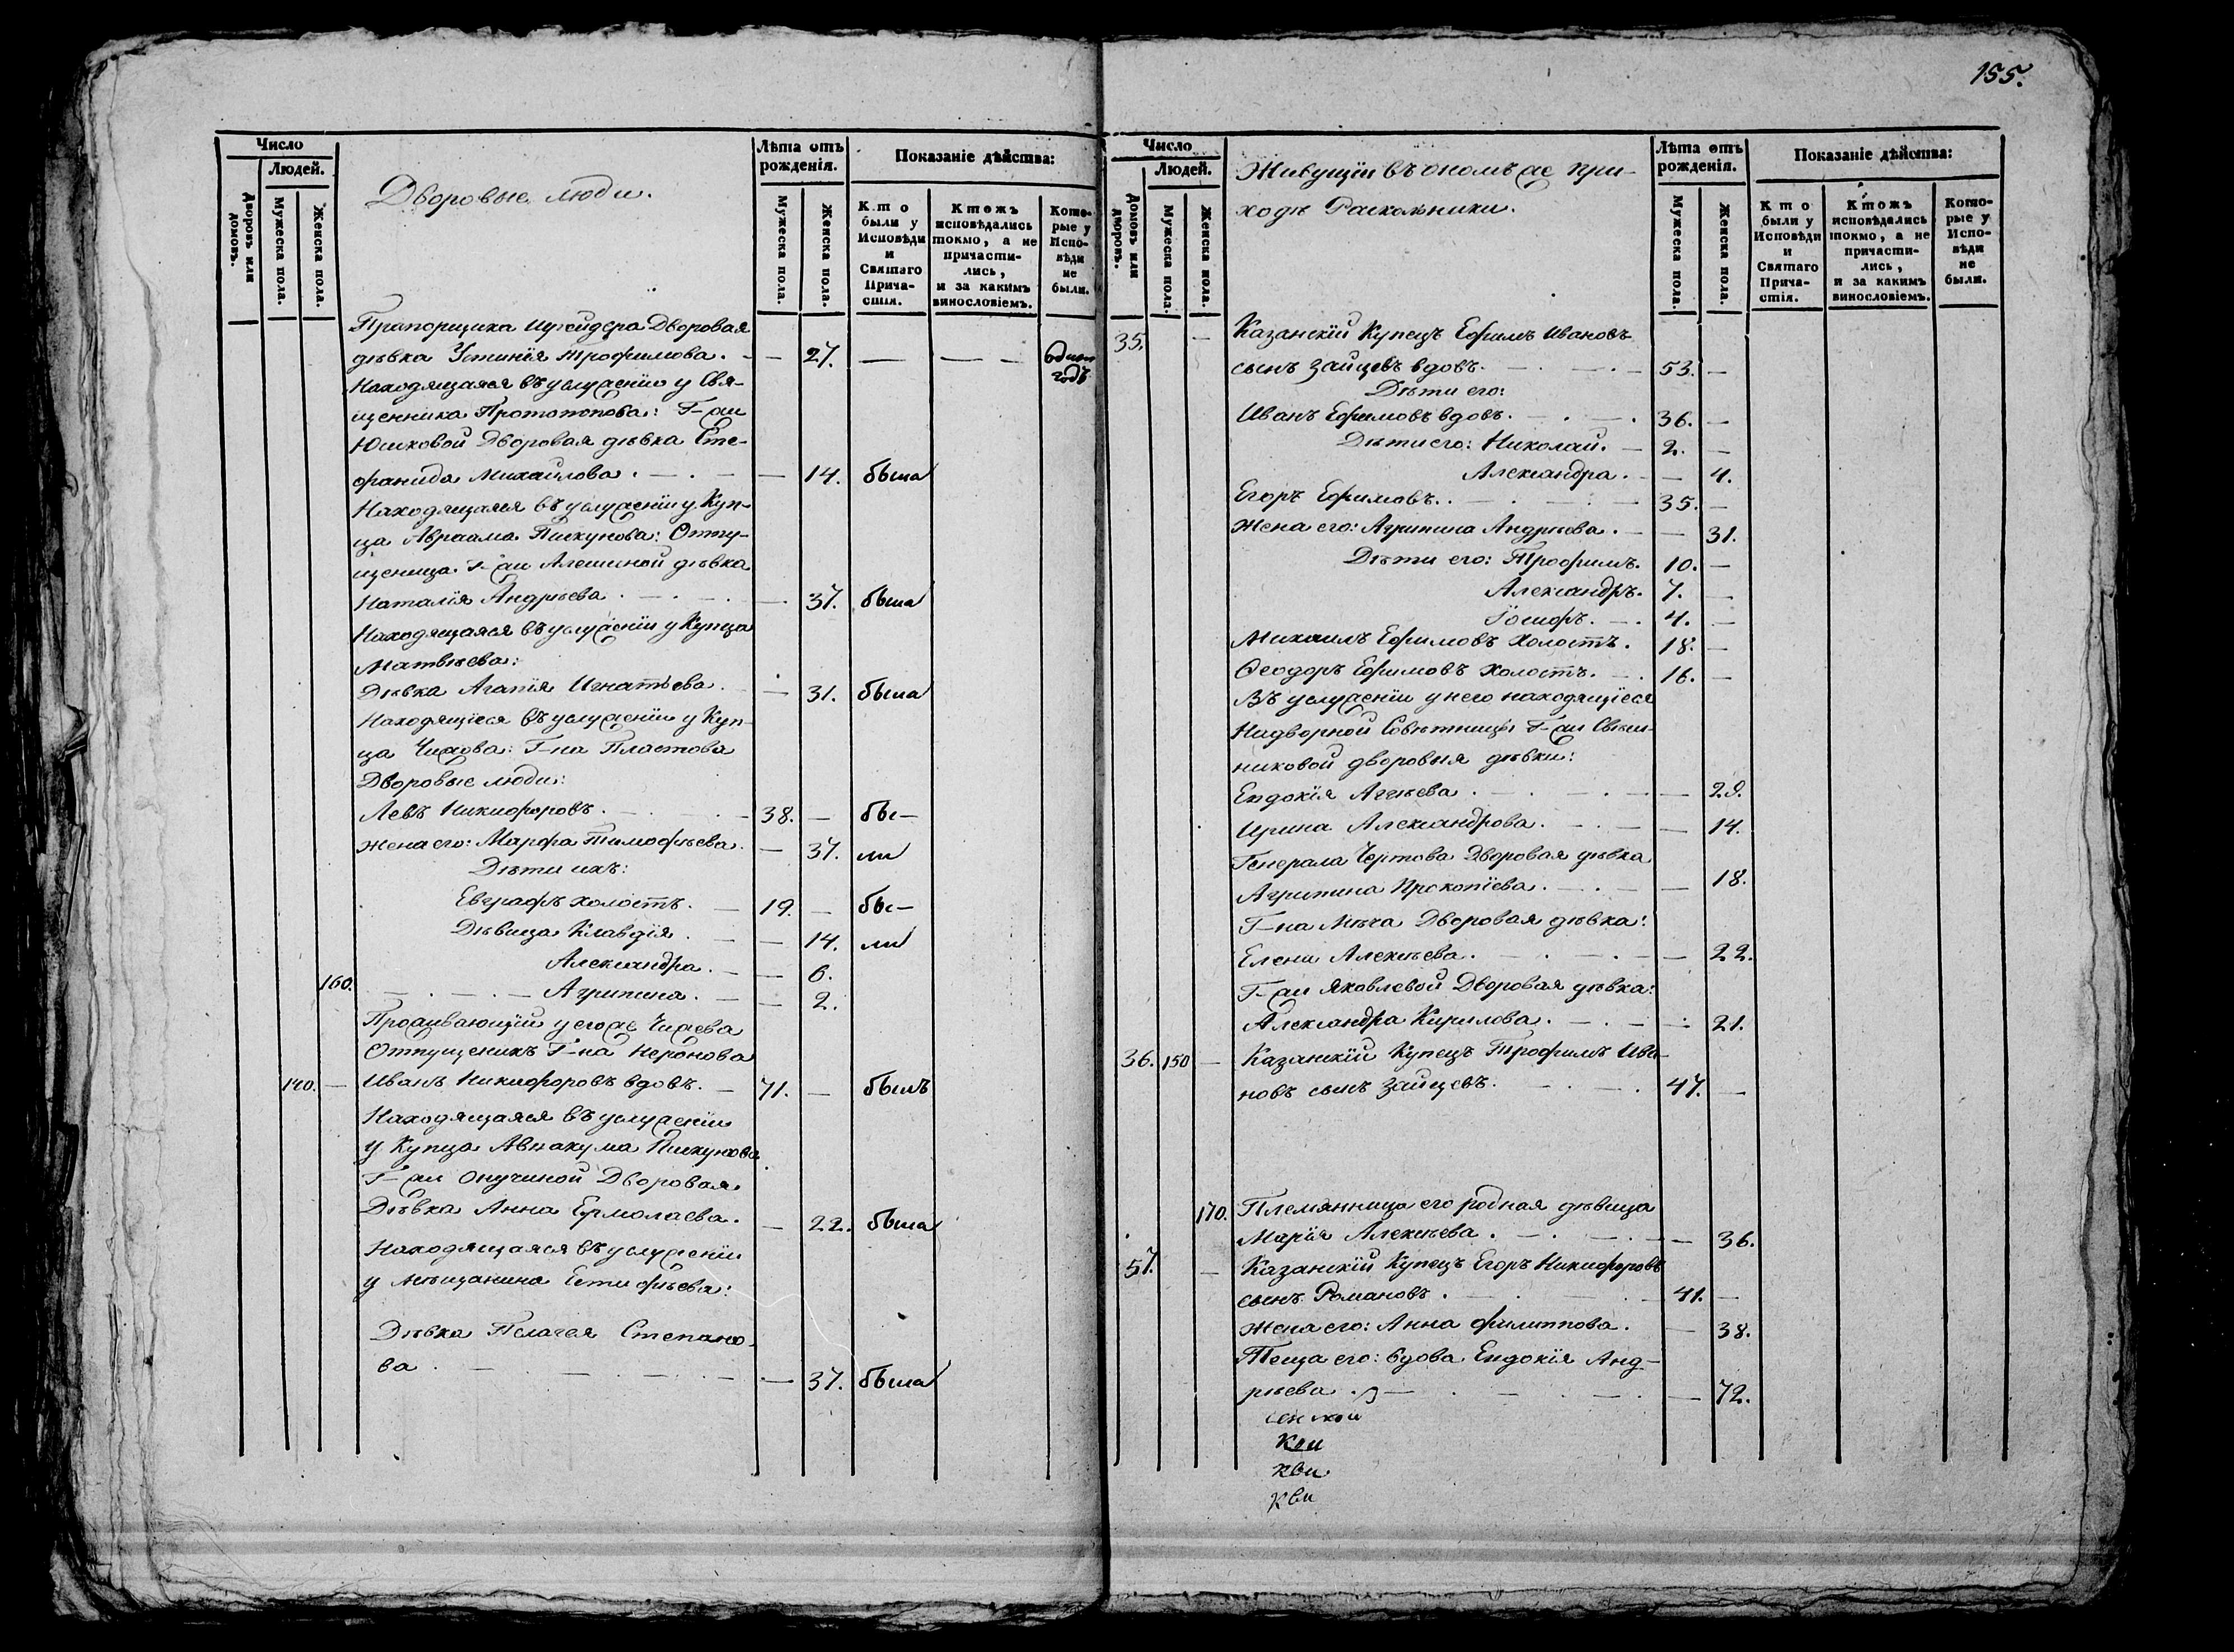 155.
Число
Людей.
Дворовъ или домовъ.
Мужеска пола.
Женска пола.
Дворовые люди.
Лѣта отъ рожденія.
Мужеска пола.
Женска пола.
Показаніе дѣйства:
Кто были у Исповѣди и Святаго Прича-стія.
Ктожъ исповѣдались токмо, а не причасти-лись, и за какимъ винословіемъ.
Кото-рые у Испо-вѣди не были.
Прапорщика Дворовая
дѣвка Устинія Трофимова. — 27. — — — одинъ годъ
Находящаяся въ услуженіи у Свя-
щенника Протопопова: Г-жи
Юшковой Дворовая дѣвка Сте-
фанида Михайлова. — 14. была
Находящаяся въ услуженіи у Куп-
ца Авраама Пискунова: Отпу-
щеница Г-жи Алешиной дѣвка
Наталія Андрѣева. — 37. была
Находящаяся въ услуженіи у Купца
Матвѣева:
Дѣвка Агапія Игнатьева. — 31. была
Находящіеся въ услуженіи у Куп-
ца Чижова: Г-на Пластова
Дворовые люди:
Левъ Никифоровъ. 38. — бы-
жена его: Марфа Тимофѣева. — 37. ли
Дѣти ихъ:
Евграфъ холостъ. — 19. — бы-
Дѣвица Клавдія. — 14. ли
Александра. — 6.
160. Агрипина. — 2.
Проживающій у его же Чижева
Отпущеникъ Г-на Неронова
140. — Иванъ Никифоровъ вдовъ. — 71. — былъ
Находящаяся въ услуженіи
у Купца Аввакума Пискунова
Г-жи Онучиной Дворовая
Дѣвка Анна Ермолаева. — 22. была
Находящаяся въ услуженіи
у мѣщанина Естифѣева:
Дѣвка Пелагея Степано-
ва. — 37. была
Число
Людей.
Домовъ или дворовъ.
Мужеска пола.
Женска пола.
Живущіи въ ономъ же при-
ходѣ Раскольники.
Лѣта отъ рожденія.
Мужеска пола.
Женска пола.
Показаніе дѣйства:
Кто были у Исповѣди и Святаго Прича-стія.
Ктожъ исповѣдались токмо, а не причасти-лись, и за какимъ винословіемъ.
Кото-рые у Испо-вѣди не были.
35. — Казанскій Купецъ Ефимъ Ивановъ
сынъ Зайцевъ вдовъ. — 53. —
Дѣти его:
Иванъ Ефимовъ вдовъ. — 36. —
Дѣти его: Николай. — 2. —
Александра. — 4.
Егоръ Ефимовъ. — 35. —
Жена его: Агрипина Андрѣева. — 31.
Дѣти его: Трофимъ. 10. —
Александръ. 7. —
Іосифъ. — 4. —
Михаилъ Ефимовъ Холостъ. 18. —
Ѳеодоръ Ефимовъ Холостъ. — 16. —
Въ услуженіи у него находящіеся
Надворной Совѣтницы Г-жи Свѣш-
никовой дворовыя дѣвки:
Евдокія Аггѣева. — 29.
Ирина Александрова. — 14.
Генерала Чертова Дворовая дѣвка
Агрипина Прокопіева. — 18.
Г-на Мѣча Дворовая дѣвка:
Елена Алексѣева. — 22.
Г-жи Яковлевой Дворовая дѣвка:
Александра Кирилова. — 21.
36. 150 — Казанскій Купецъ Трофимъ Ива-
новъ сынъ Зайцевъ. — 47. —
170. Племянница его родная дѣвица
Марія Алексѣева. — 36.
57. — Казанскій Купецъ Егоръ Никифоровъ
сынъ Романовъ. — 41. —
Жена его: Анна Филиппова. — 38.
Теща его: вдова Евдокія Анд-
рѣева. — 72.